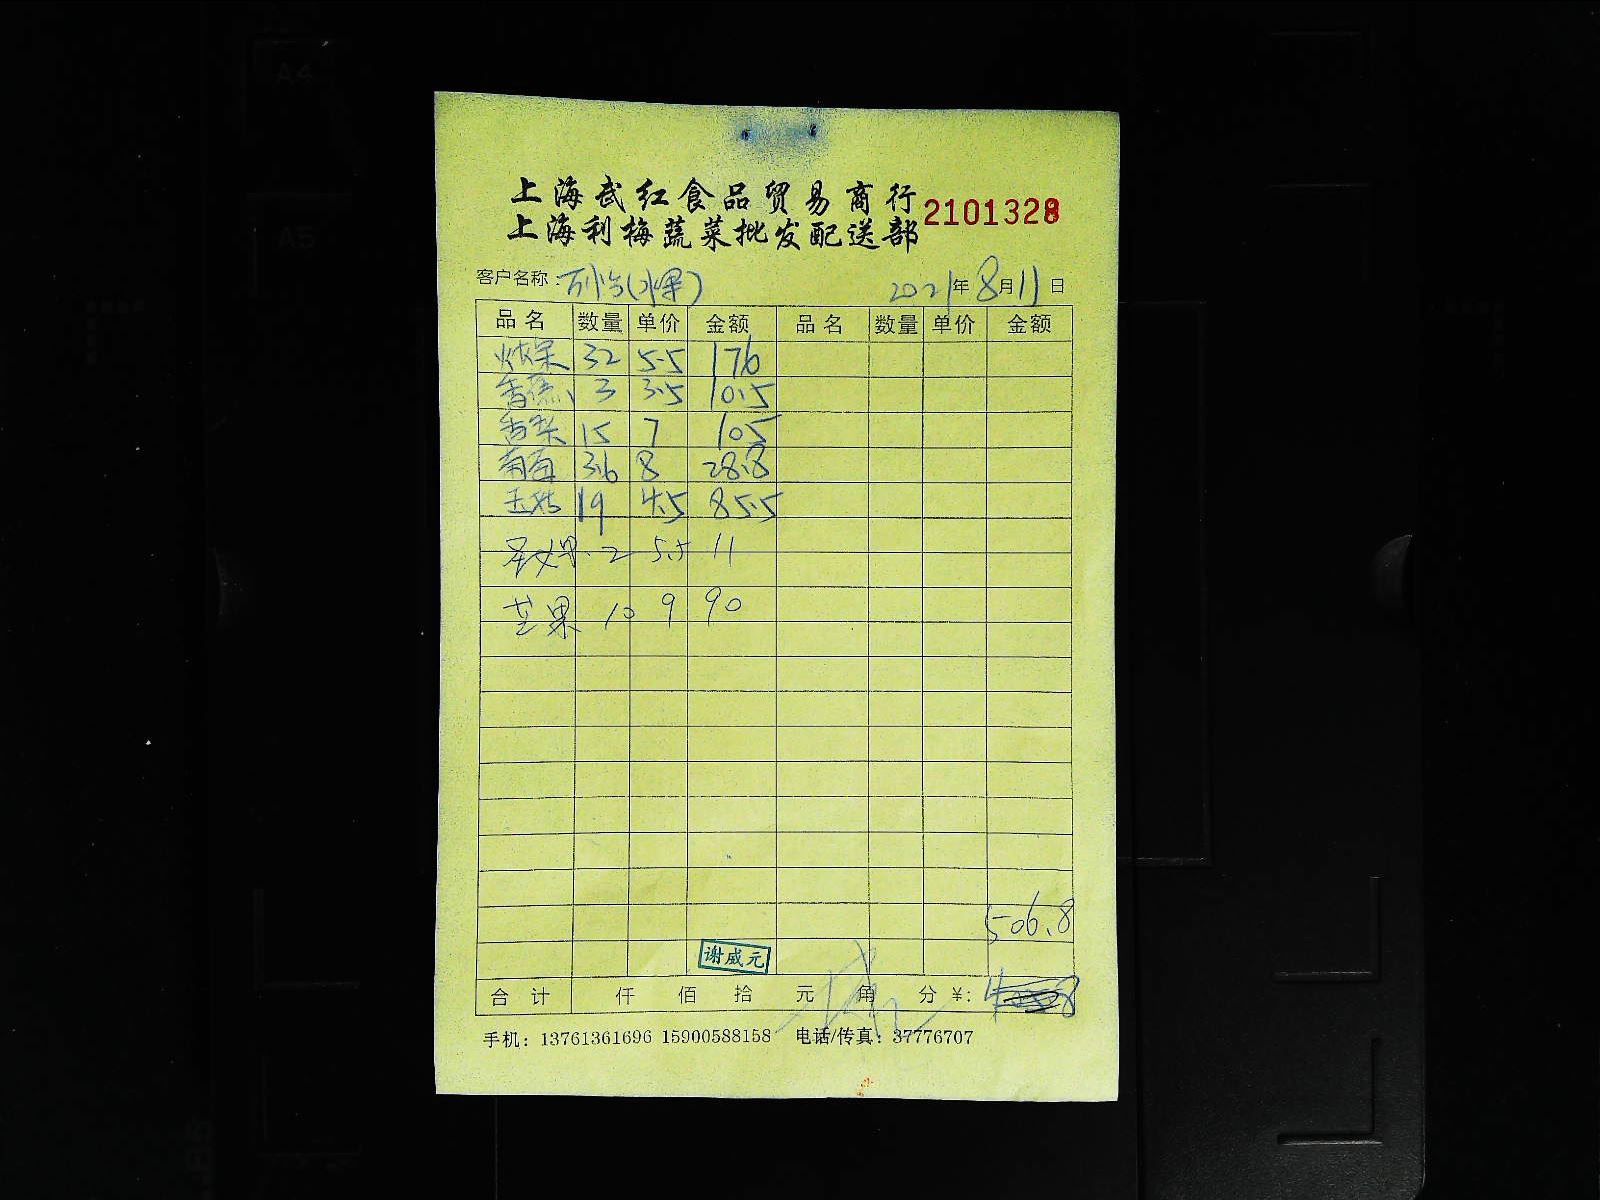 上海武红食品贸易商行
上海利梅蔬菜批发配送部 2101328
客户名称: (水果) 2021年8月11日
品名 数量 单价 金额 品名 数量 单价 金额
火龙果 32 5.5 176
香蕉 3 3.5 10.5
香梨 15 7 105
葡萄 3.6 8 28.8
玉菇 19 4.5 85.5
圣女果 2 5.5 11
芒果 10 9 90
506.8
谢威元
合计 仟 佰 拾 元 角 分 ¥:
手机: 13761361696 15900588158 电话/传真: 37776707
A4
A5